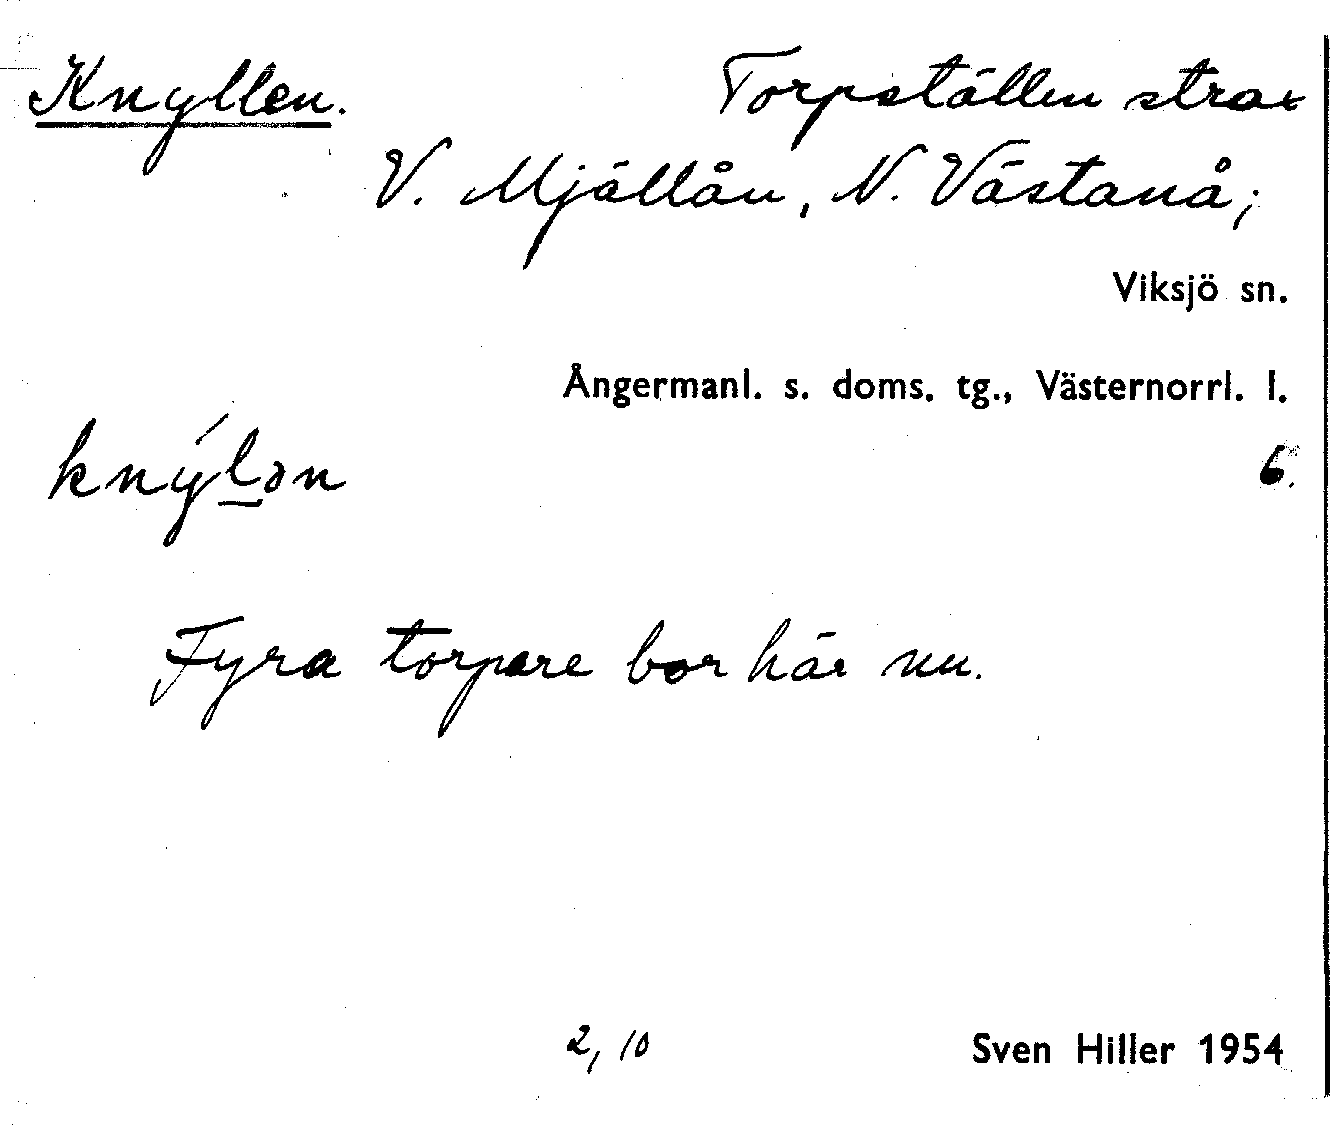 Knyllen. Torpställen strax
V. Mjällån, N. Västanå;
Viksjö sn.
Ångermanl. s. doms. tg., Västernorrl. l.
knýl̲ən 6.
Fyra torpare bor här nu.
2, 10 Sven Hiller 1954